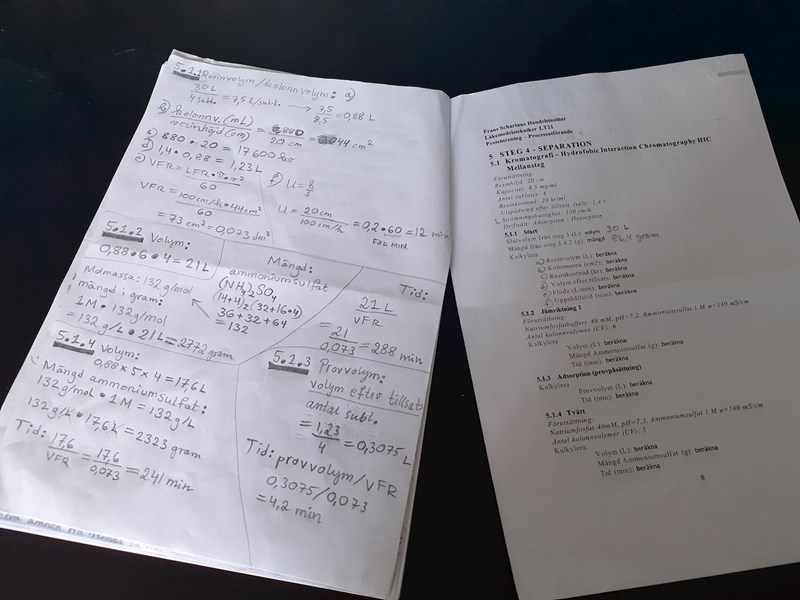 5.1.1 Resinvolym/kolonnvolym: a)
30L
4 subl. = 7,5 L/subl. → 7,5
8,5 = 0,88 L
b) kolonnv.(mL)
resinhöjd(cm) = 880
20 cm = 44 cm²
c) 880 • 20 = 17600
d) 1,4 • 0,88 = 1,23L
e) VFR = LFR • π • r²
60
VFR = 100cm/h • 44cm²
60
= 73 cm³ = 0,073 dm³
f) u = h
u = 20cm
100cm/h = 0,2 • 60 = 12 min
FÖR MIN.
5.1.2 Volym:
0,88 • 6 • 4 = 21L
Molmassa: 132 g/mol
mängd i gram:
1M • 132g/mol
= 132 g/L • 21L = 2772 gram
Mängd:
ammoniumsulfat
(NH4)2SO4
(14+4)2(32+16•4)
36+32+64
= 132
Tid:
21L
VFR
= 21
0,073 = 288 min
5.1.4 Volym:
0,88 × 5 × 4 = 17,6L
Mängd ammoniumsulfat:
132g/mol • 1M = 132g/L
132 g/L • 17,6L = 2323 gram
Tid: 17,6
VFR = 17,6
0,073 = 241 min
5.1.3 Provvolym:
volym efter tillsats
antal subl.
= 1,23
4 = 0,3075 L
Tid: provvolym/VFR
0,3075/0,073
= 4,2 min
Frans Schartaus Handelsinstitut
Läkemedelstekniker LT21
Proteinrening – Processutförande
5 STEG 4 - SEPARATION
5.1 Kromatografi – Hydrofobic Interaction Chromatography HIC
Mellansteg
Förutsättning:
Resinhöjd: 20 cm
Kapacitet: 8,5 mg/ml
Antal subloter: 4
Resinkostnad: 20 kr/ml
Utspädning efter tillsats (salt): 1,4 x
Strömningshastighet: 100 cm/h
Driftsätt: Adsorption - Desorption
5.1.1 Start
Slutvolym från steg 3 (L): volym 30 L
Mängd från steg 3.4.2 (g): mängd 86,4 gram
Kalkylera
a) Resinvolym (L): beräkna
b) Kolonnarea (cm2): beräkna
c) Resinkostnad (kr): beräkna
d) Volym efter tillsats: beräkna
e) Flöde (L/min): beräkna
f) Uppehållstid (min): beräkna
5.1.2 Jämviktning 1
Förutsättning:
Natriumfosfatbuffert 40 mM, pH=7,2, Ammoniumsulfat 1 M κ=140 mS/cm
Antal kolonnvolymer (CV): 6
Kalkylera
Volym (L): beräkna
Mängd Ammoniumsulfat (g): beräkna
Tid (min): beräkna
5.1.3 Adsorption (provpåsättning)
Kalkylera
Provvolym (L): beräkna
Tid (min): beräkna
5.1.4 Tvätt
Förutsättning:
Natriumfosfat 40mM, pH=7,2, Ammoniumsulfat 1 M κ=140 mS/cm
Antal kolonnvolymer (CV): 5
Kalkylera
Volym (L): beräkna
Mängd Ammoniumsulfat (g): beräkna
Tid (min): beräkna
8